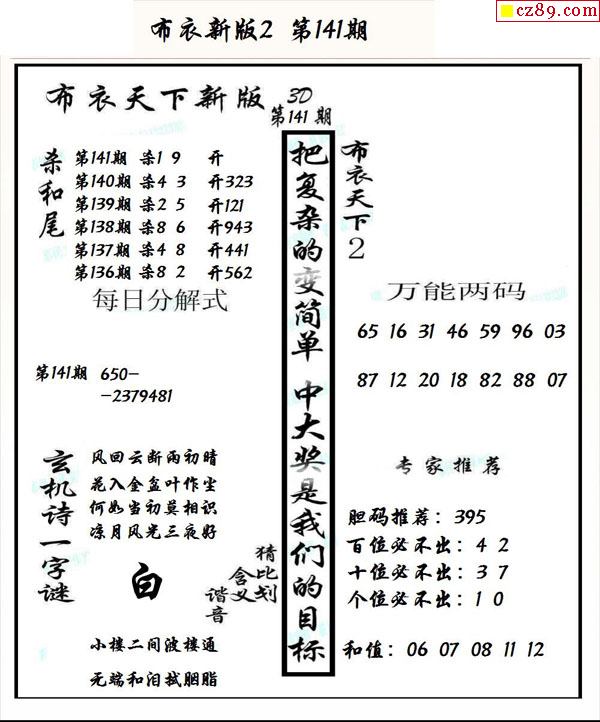 cz89.com
布衣新版2 第141期
布衣天下新版 3D
第141期
杀和尾
第141期 杀1 9 开
第140期 杀4 3 开323
第139期 杀2 5 开121
第138期 杀8 6 开943
第137期 杀4 8 开441
第136期 杀8 2 开562
每日分解式
第141期 650-
-2379481
玄机诗一字谜
风回云断雨初晴
花入金盆叶作尘
何如当初莫相识
凉月风光三夜好
白
猜比划
含义
谐音
小楼二间波楼通
无端和泪拭胭脂
把复杂的变简单 中大奖是我们的目标
布衣天下2
万能两码
65 16 31 46 59 96 03
87 12 20 18 82 88 07
专家推荐
胆码推荐：395
百位必不出：4 2
十位必不出：3 7
个位必不出：1 0
和值：06 07 08 11 12